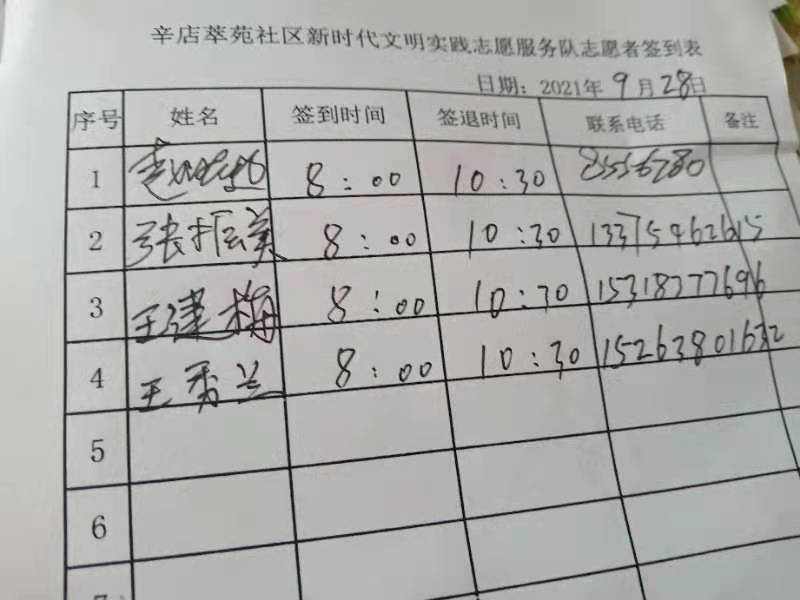 辛店萃苑社区新时代文明实践志愿服务队志愿者签到表
日期：2021年 9月28日
序号 姓名 签到时间 签退时间 联系电话 备注
1 8：00 10：30 8556280
2 张振美 8：00 10：30 13375462615
3 王建梅 8：00 10：30 15318377696
4 王秀兰 8：00 10：30 15263801632
5
6